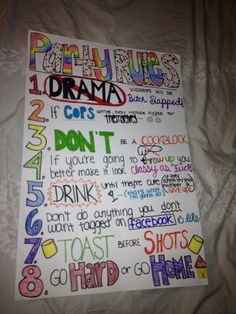 Party Rules
1. DRAMA violators will be Bitch Slapped!
2. If COPS arrive, every man for
themselves...
3. DON'T BE A COCKBLOCK
4. If you're going to throw up you
better make it look classy as fuck
5. DRINK until they're cute
6. Don't do anything you don't
want tagged on facebook
7. TOAST BEFORE SHOTS
8. GO HARD or GO HOME